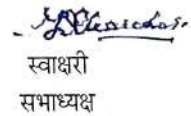 स्वाक्षरी
सभाध्यक्ष